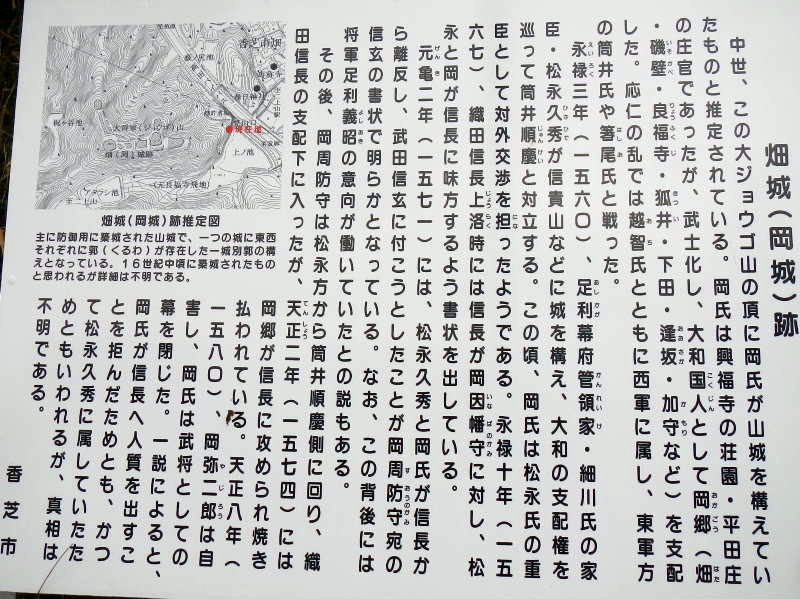 畑城（岡城）跡
中世、この大ジョウゴ山の頂に岡氏が山城を構えてい
たものと推定されている。岡氏は興福寺の荘園・平田庄
の庄官であったが、武士化し、大和国人として岡郷（畑
・磯壁・良福寺・狐井・下田・逢坂・加守など）を支配
した。応仁の乱では越智氏とともに西軍に属し、東軍方
の筒井氏や箸尾氏と戦った。
永禄三年（一五六〇）　足利幕府管領家・細川氏の家
臣・松永久秀が信貴山などに城を構え、大和の支配権を
巡って筒井順慶と対立する。この頃、岡氏は松永氏の重
臣として対外交渉を担ったようである。永禄十年（一五
六七）、織田信長上洛時には信長が岡因幡守に対し、松
永と岡が信長に味方するよう書状を出している。
元亀二年（一五七一）には、松永久秀と岡氏が信長か
ら離反し、武田信玄に付こうとしたことが岡周防守宛の
信玄の書状で明らかとなっている。なお、この背後には
将軍足利義昭の意向が働いていたとの説もある。
その後、岡周防守は松永方から筒井順慶側に回り、織
田信長の支配下に入ったが、天正二年（一五七四）には
岡郷が信長に攻められ焼き
払われている。天正八年（
一五八〇）、岡弥二郎は自
害し、岡氏は武将としての
幕を閉じた。一説によると、
岡氏が信長へ人質を出すこ
とを拒んだためとも、かつ
て松永久秀に属していたた
めともいわれるが、真相は
不明である。
香芝市
畑城（岡城）跡推定図
主に防御用に築城された山城で、一つの城に東西
それぞれに郭（くるわ）が存在した一城別郭の構
えとなっている。１６世紀中頃に築城されたもの
と思われるが詳細は不明である。
香芝市畑
現在地
上ノ池
畑（岡）城跡
（元良福寺飛地）
二上山